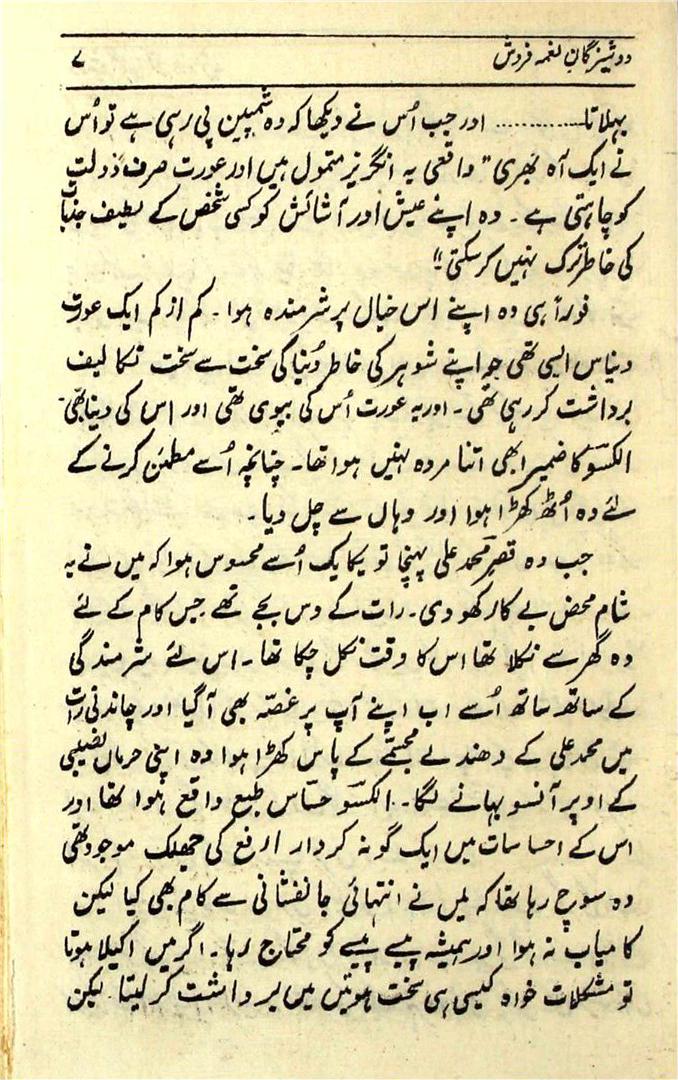 دوشیزگانِ نغمہ فروش ۷
بہلاتا............ اور جب اُس نے دیکھا کہ وہ شمپین پی رہی ہے تو اُس
نے ایک آہ بھری "واقعی یہ انگریز متمول ہیں اور عورت صرف دولت
کو چاہتی ہے۔ وہ اپنے عیش اور آشائش کو کسی شخص کے لطیف جذبات
کی خاطر ترک نہیں کرسکتی"!
فوراً ہی وہ اپنے اس خیال پر شرمندہ ہوا۔ کم از کم ایک عورت
دیناس ایسی تھی جو اپنے شوہر کی خاطر دُنیا کی سخت سے سخت تکالیف
برداشت کر رہی تھی۔ اور یہ عورت اُس کی بیوی تھی اور اس کی دینا تھی۔
الکسو کا ضمیر ابھی اتنا مردہ نہیں ہوا تھا۔ چنانچہ اُسے مطمئن کرنے کے
لئے وہ اُٹھ کھڑا ہوا اور وہاں سے چل دیا۔
جب وہ قصرِ محمد علی پہنچا تو یکایک اُسے محسوس ہوا کہ میں نے یہ
شام محض بے کار کھو دی۔ رات کے دس بجے تھے جس کام کے لئے
وہ گھر سے نکلا تھا اس کا وقت نکل چکا تھا۔ اس لئے شرمندگی
کے ساتھ ساتھ اُسے اب اپنے آپ پر غصّہ بھی آگیا اور چاندنی رات
میں محمد علی کے دھندلے مجسّمے کے پاس کھڑا ہوا وہ اپنی حرماں نصیبی
کے اوپر آنسو بہانے لگا۔ الکسو حساس طبع واقع ہوا تھا اور
اس کے احساسات میں ایک گونہ کردار ارفع کی جھلک موجود تھی
وہ سوچ رہا تھا کہ میں نے انتہائی جانفشانی سے کام بھی کیا لیکن
کامیاب نہ ہوا اور ہمیشہ پیسے پیسے کو محتاج رہا۔ اگر میں اکیلا ہوتا
تو مشکلات خواہ کیسی ہی سخت ہوتیں میں برداشت کر لیتا۔ لیکن